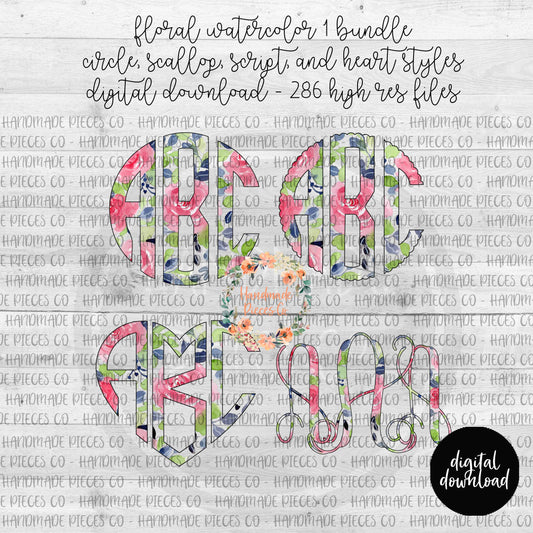 floral watercolor 1 bundle
circle, scallop, script, and heart styles
digital download - 286 high res files
HANDMADE PIECES CO - HANDMADE PIECES CO - HANDMADE PIECES CO
ABC
ABC
Handmade
Pieces Co
ABC
AAA
digital
download